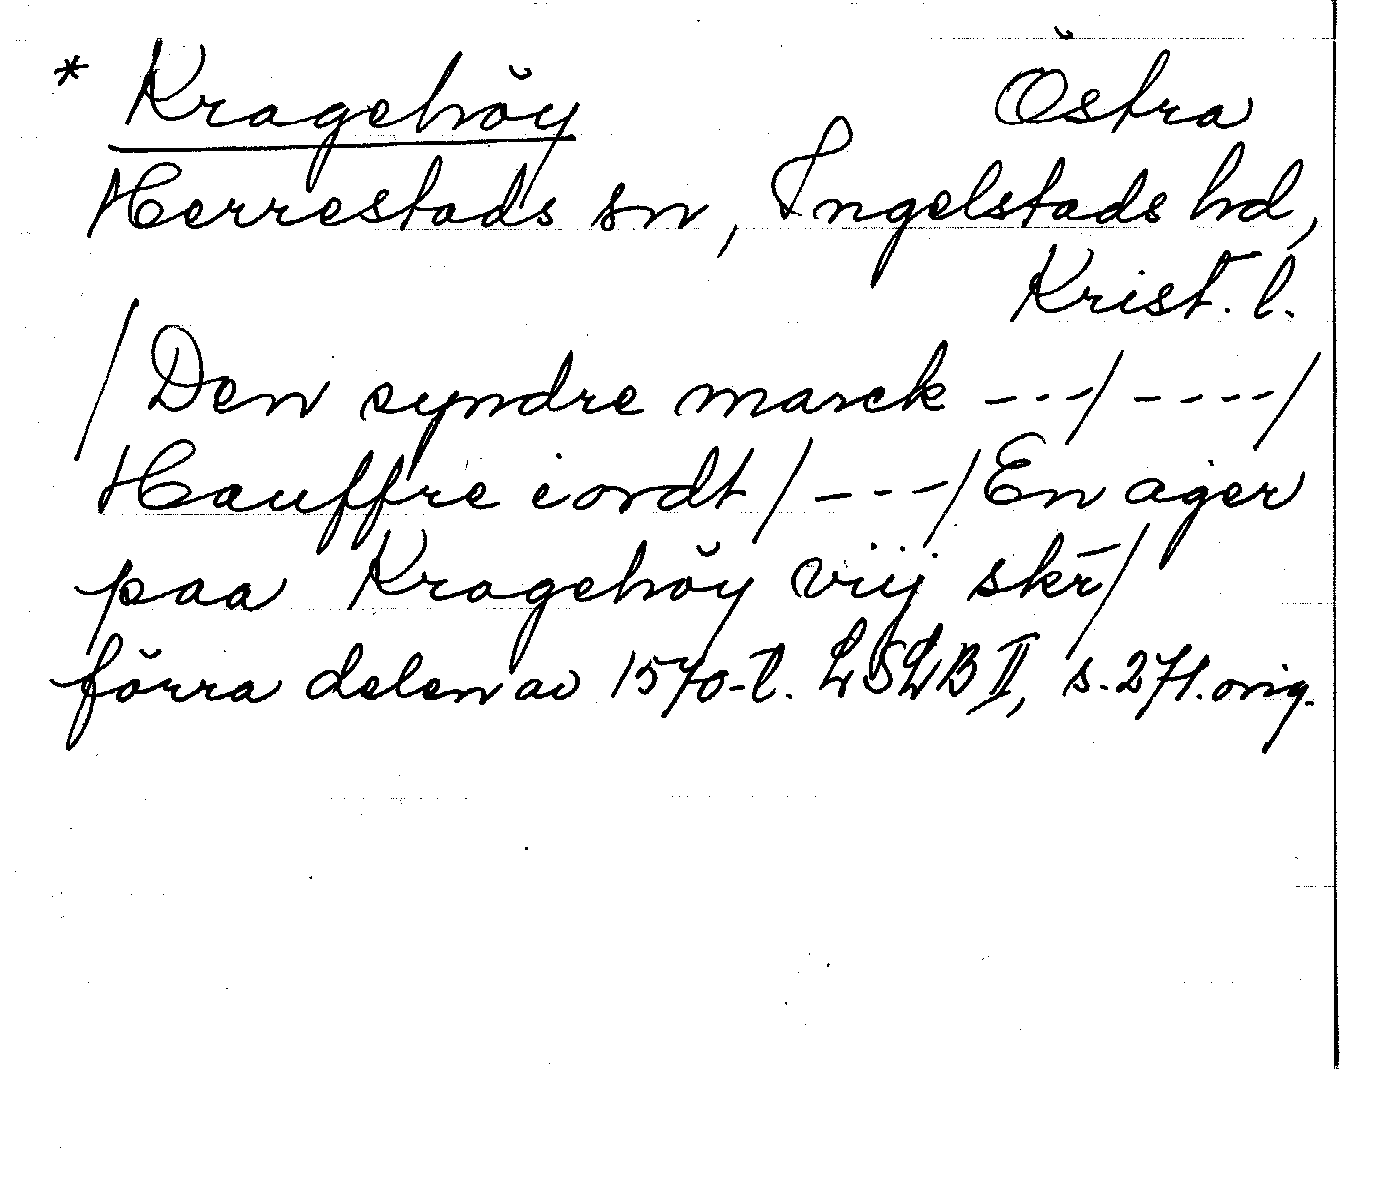 * Kragehöy Östra
Herrestads sn, Ingelstads hd,
Krist. l.
/Den syndre marck ---/ ----/
Hauffre iordt/ ---/ En ager
paa Kragehöy vijj skr̄/
förra delen av 1570-t. LSLB II, s. 271. orig.